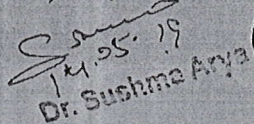 14.05.19
Dr. Sushma Arya